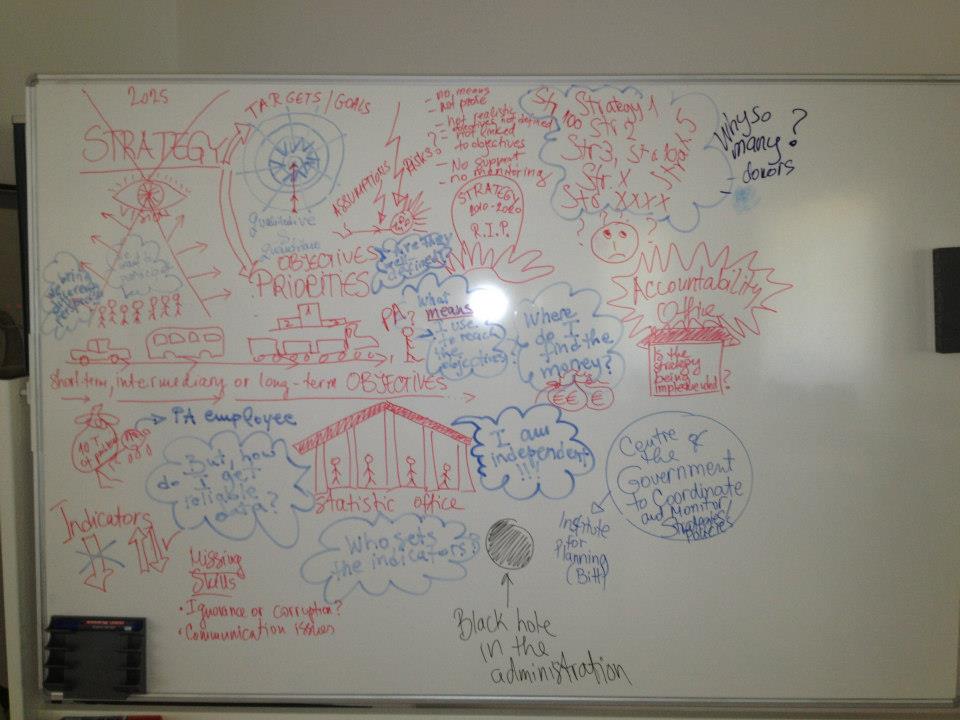 2025
STRATEGY
TARGETS/GOALS
qualitative
&
ASSUMPTIONS
RISKS?
- no means
- not realistic
- not linked
to objectives
- No support
- no monitoring
STRATEGY
2010-2020
R.I.P.
Strategy 1
Str 2
Str 3,
Str. X
Str. XXXX
Why so
many?
donors
? ?
OBJECTIVES
PRIORITIES
Are they
well
defined?
We bring
different
perspectives
PA?
What
means
I use
to reach
the
objectives?
Where
do I
find the
money?
€ €€
Accountability
Office
Is the
strategy
being
implemented?
short-term, intermediary or long-term OBJECTIVES
PA employee
But, how
do I get
reliable
data?
statistic office
I am
independent
!!!
Centre of
the
Government
to Coordinate
and Monitor
Strategies/
Policies
Institute
for
Planning
(BiH)
Indicators
Missing
Skills
• Ignorance or corruption?
• Communication issues
Who sets
the indicators?
Black hole
in the
administration